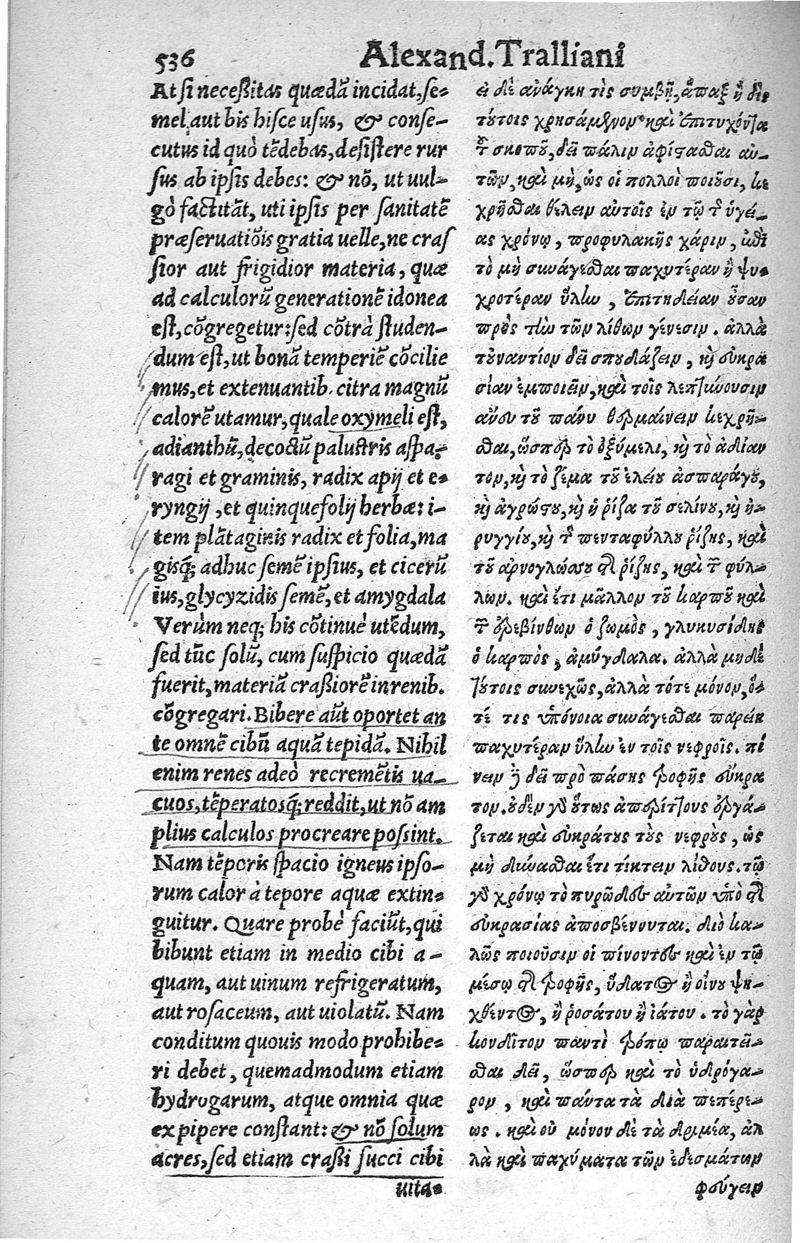 536
Alexand. Tralliani
At si neceßitas quædā incidat, se-
mel, aut bis hisce usus, & conse-
cutus id quò tēdebas, desistere rur
sus ab ipsis debes: & nō, ut uul-
gò factitāt, uti ipsis per sanitatē
præseruatiōis gratia uelle, ne cras
sior aut frigidior materia, quæ
ad calculorū generationē idonea
est, cōgregetur: sed cōtrà studen-
dum est, ut bonā temperiē cōcilie
mus, et extenuantib. citra magnū
calorē utamur, quale oxymeli est,
adianthū, decoctū palustris aspa-
ragi et graminis, radix apij et e-
ryngij, et quinquefolij herbæ: i-
tem plātaginis radix et folia, ma
gisq; adhuc semē ipsius, et cicerū
ius, glycyzidis semē, et amygdala
Verùm neq; his cōtinuè utēdum,
sed tūc solū, cum suspicio quædā
fuerit, materiā craßiorē in renib.
cōgregari. Bibere aūt oportet an
te omnē cibū aquā tepidā. Nihil
enim renes adeò recremētis ua-
cuos, tēperatosq́; reddit, ut nō am
plius calculos procreare possint.
Nam tēporis spacio igneus ipso-
rum calor à tepore aquæ extin-
guitur. Quare probè faciūt, qui
bibunt etiam in medio cibi a-
quam, aut uinum refrigeratum,
aut rosaceum, aut uiolatū. Nam
conditum quouis modo prohibe-
ri debet, quemadmodum etiam
hydrogarum, atque omnia quæ
ex pipere constant: & nō solum
acres, sed etiam craßi succi cibi
uita-
εἰ δὲ ἀνάγκη τὶς συμβῇ, ἅπαξ ἢ δὶς
τούτοις χρησάμενον καὶ ἐπιτυχόντα
τοῦ σκοποῦ, δεῖ πάλιν ἀφίστασθαι αὐ-
τῶν, καὶ μὴ, ὡς οἱ πολλοὶ ποιοῦσι, κε
χρῆσθαι θέλειν αὐτοῖς ἐν τῷ τῆς ὑγεί-
ας χρόνῳ, προφυλακῆς χάριν, ὑπὲρ
τὸ μὴ συνάγεσθαι παχυτέραν ἢ ψυ-
χροτέραν ὕλην, ἐπιτηδείαν οὖσαν
πρὸς τὴν τῶν λίθων γένεσιν. ἀλλὰ
τοὐναντίον δεῖ σπουδάζειν, καὶ εὐκρα
σίαν ἐμποιεῖν, καὶ τοῖς λεπτύνουσιν
ἄνευ τοῦ πάνυ θερμαίνειν κεχρῆ-
σθαι, ὥσπερ τὸ ὀξύμελι, καὶ τὸ ἀδίαν
τον, καὶ τὸ ζέμα τοῦ ἑλείου ἀσπαράγου,
καὶ ἀγρώστου, καὶ ἡ ῥίζα τοῦ σελίνου, καὶ ἠ-
ρυγγίου, καὶ τοῦ πενταφύλλου ῥίζης, καὶ
τοῦ ἀρνογλώσσου τῆς ῥίζης, καὶ τῶν φύλ-
λων. καὶ ἔτι μᾶλλον τοῦ καρποῦ καὶ
τῶν ἐρεβίνθων ὁ ζωμὸς, γλυκυσίδης
ὁ καρπὸς, ἀμύγδαλα. ἀλλὰ μηδὲ
τούτοις συνεχῶς, ἀλλὰ τότε μόνον, ὅ-
τέ τις ὑπόνοια συνάγεσθαι παρείη
παχυτέραν ὕλην ἐν τοῖς νεφροῖς. πί
νειν δὲ δεῖ πρὸ πάσης τροφῆς εὔκρα
τον. οὐδὲν γὰρ οὕτως ἀπερίττους ἐργά-
ζεται καὶ εὐκράτους τοὺς νεφροὺς, ὡς
μὴ δύνασθαι ἔτι τίκτειν λίθους. τῷ
γὰρ χρόνῳ τὸ πυρῶδες αὐτῶν ὑπὸ τῆς
εὐκρασίας ἀποσβένουται. διὸ κα-
λῶς ποιοῦσιν οἱ πίνοντες καὶ ἐν τῷ
μέσῳ τῆς τροφῆς, ὕδατος ἢ οἴνου ψη-
χθέντος, ἢ ῥοσάτου ἢ ἰάτου. τὸ γὰρ
κονδῖτον παντὶ τρόπῳ παραιτεῖ-
σθαι δεῖ, ὥσπερ καὶ τὸ ὑδρόγα-
ρον, καὶ πάντα τὰ διὰ πεπέρε-
ως. καὶ οὐ μόνον δὲ τὰ δριμέα, ἀλ
λὰ καὶ παχύματα τῶν ἐδεσμάτων
φεύγειν